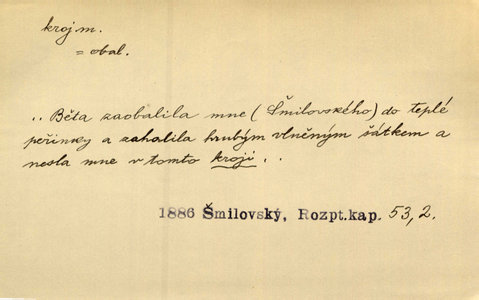 kroj m.
= obal.
.. Běta zaobalila mne (Šmilovského) do teplé
peřinky a zahalila hrubým vlněným šátkem a
nesla mne v tomto kroji ..
1886 Šmilovský, Rozpt.kap. 53,2.